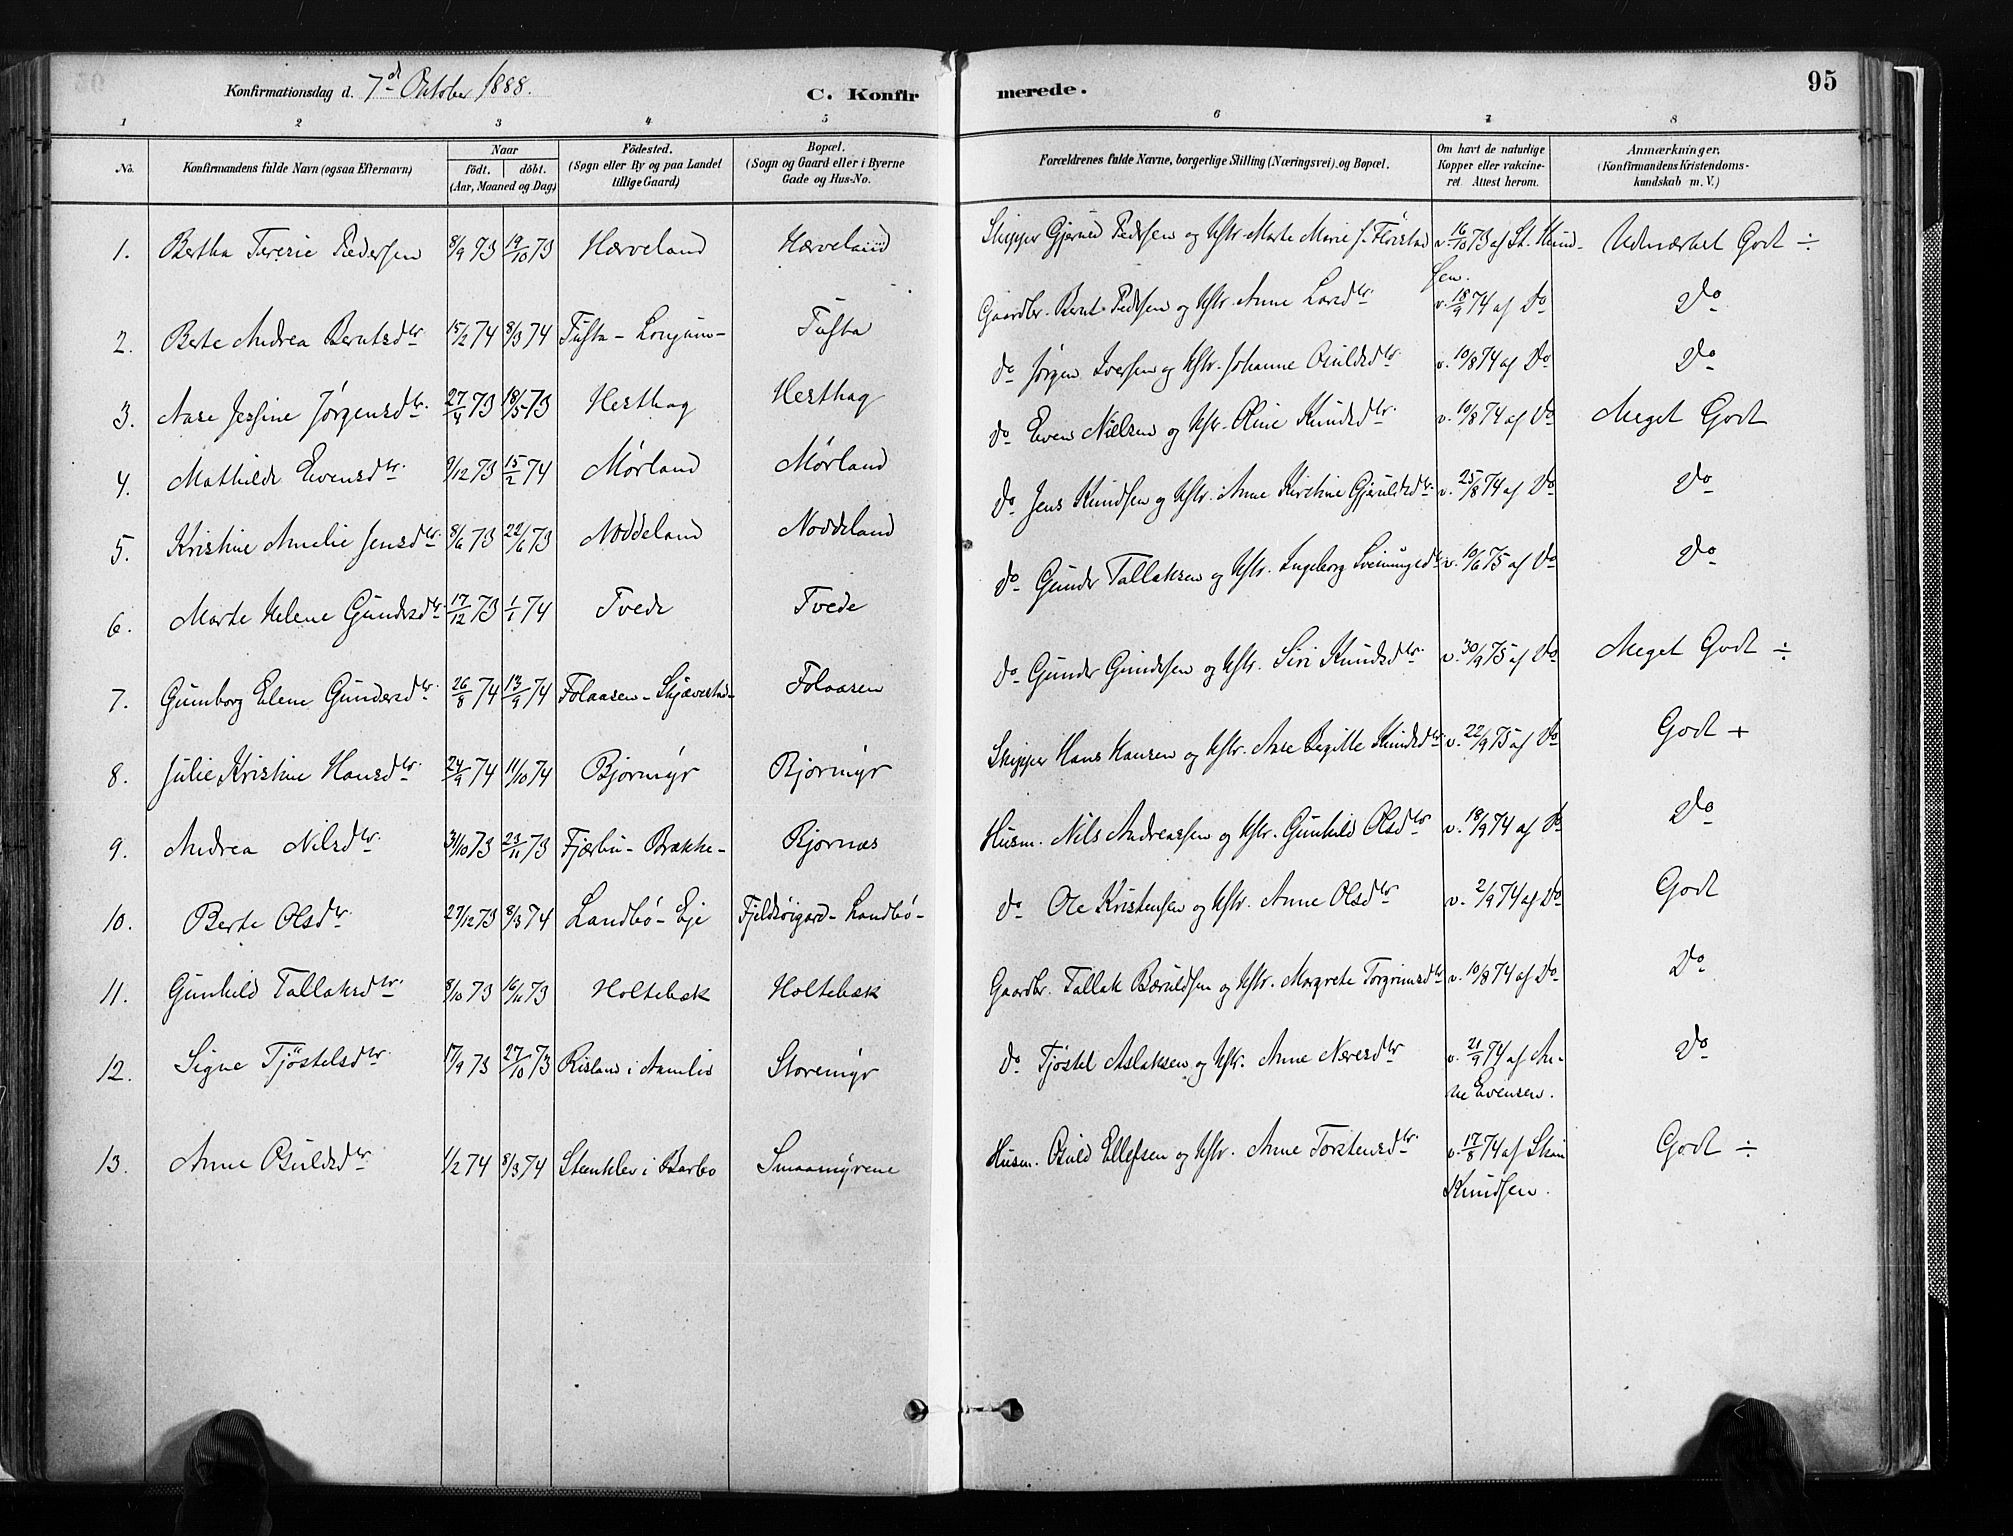 95
Konfirmationsdag d. 7de Oktober 1888.
C. Konfirmerede.
1 2 3 4 5 6 7 8
No.
Konfirmandens fulde Navn (ogsaa Efternavn)
Naar
födt. döbt.
(Aar, Maaned og Dag)
Födested.
(Sogn eller By og paa Landet
tillige Gaard)
Bopæl.
(Sogn og Gaard eller i Byerne
Gade og Hus-No.
Forældrenes fulde Navne, borgerlige Stilling (Næringsvei), og Bopæl.
Om havt de naturlige
Kopper eller vakcine-
ret. Attest herom.
Anmærkninger.
(Konfirmandens Kristendoms-
kundskab m. V.)
1. Bertha Teresie Pedersen 8/9 73 19/10 73 Hærveland Hærveland Skipper Gjeruld Pedersen og Hstr. Marte Marie f. Fløistad v. 16/10 73 af St. Knud- Udmærket Godt ÷
sen.
2. Berte Andrea Berntsdtr. 15/2 74 8/3 74 Tufta - Longum- Tufta Gaardbr. Bernt Pedersen og Hstr. Anne Larsdtr. v. 18/9 74 af Do Do
3. Aase Jessine Jörgensdtr. 27/4 73 18/5 73 Hesthag Hesthag do Jørgen Iversen og Hstr. Johanne Osuldsdtr. v. 10/8 74 af Do Do
4. Mathilde Evensdtr. 9/12 73 15/2 74 Mørland Mørland do Even Nielsen og Hstr. Oline Knudsdtr. v. 10/8 74 af Do Meget Godt
5. Kristine Amelie Jensdtr. 8/6 73 22/6 73 Noddeland Noddeland do Jens Knudsen og Hstr. Anne Kirstine Gjeruldsdtr. v. 25/8 74 af Do Do
6. Marte Helene Gundersdtr. 17/12 73 1/1 74 Tvede Tvede do Gunder Tallaksen og Hstr. Ingeborg Sveinungsdtr v. 10/6 75 af Do Do
7. Gumborg Elene Gundersdtr. 26/8 74 13/9 74 Folaasen - Skjævestad- Folaasen do Gunder Gundersen og Hstr. Siri Knudsdtr. v. 30/9 75 af Do Meget Godt ÷
8. Julie Kristine Hansdtr. 24/9 74 11/10 74 Bjørmyr Bjørmyr Skipper Hans Hansen og Hstr. Aase Begitte Knudsdtr v. 22/9 75 af Do Godt +
9. Andrea Nilsdtr. 31/10 73 23/11 73 Fjærbu - Brække- Bjørnæs Husm. Nils Andreassen og Hstr. Gunhild Olsdtr v. 18/9 74 af Do Do
10. Berte Olsdtr. 27/12 73 8/3 74 Landbö - Eje Fjeldvigard - Landbö- do Ole Kristensen og Hstr. Anne Olsdtr v. 2/9 74 af Do Godt
11. Gunhild Tallaksdtr. 8/10 73 16/11 73 Holtebæk Holtebæk Gaardbr. Tallak Bæruldsen og Hstr. Margrete Torgrimsdtr v. 10/8 74 af Do Do
12. Signe Tjöstelsdtr. 17/9 73 27/10 73 Risland i Aamlid Storemyr do Tjöstel Aslaksen og Hstr. Anne Næresdtr v. 21/9 74 af An- Do
ne Evensen.
13. Anne Osuldsdtr 1/2 74 8/3 74 Stenklev i Barbo Smaamyrene Husm. Osuld Ellefsen og Hstr. Anne Torstensdtr. v. 17/8 74 af Stian Godt ÷
Knudsen.